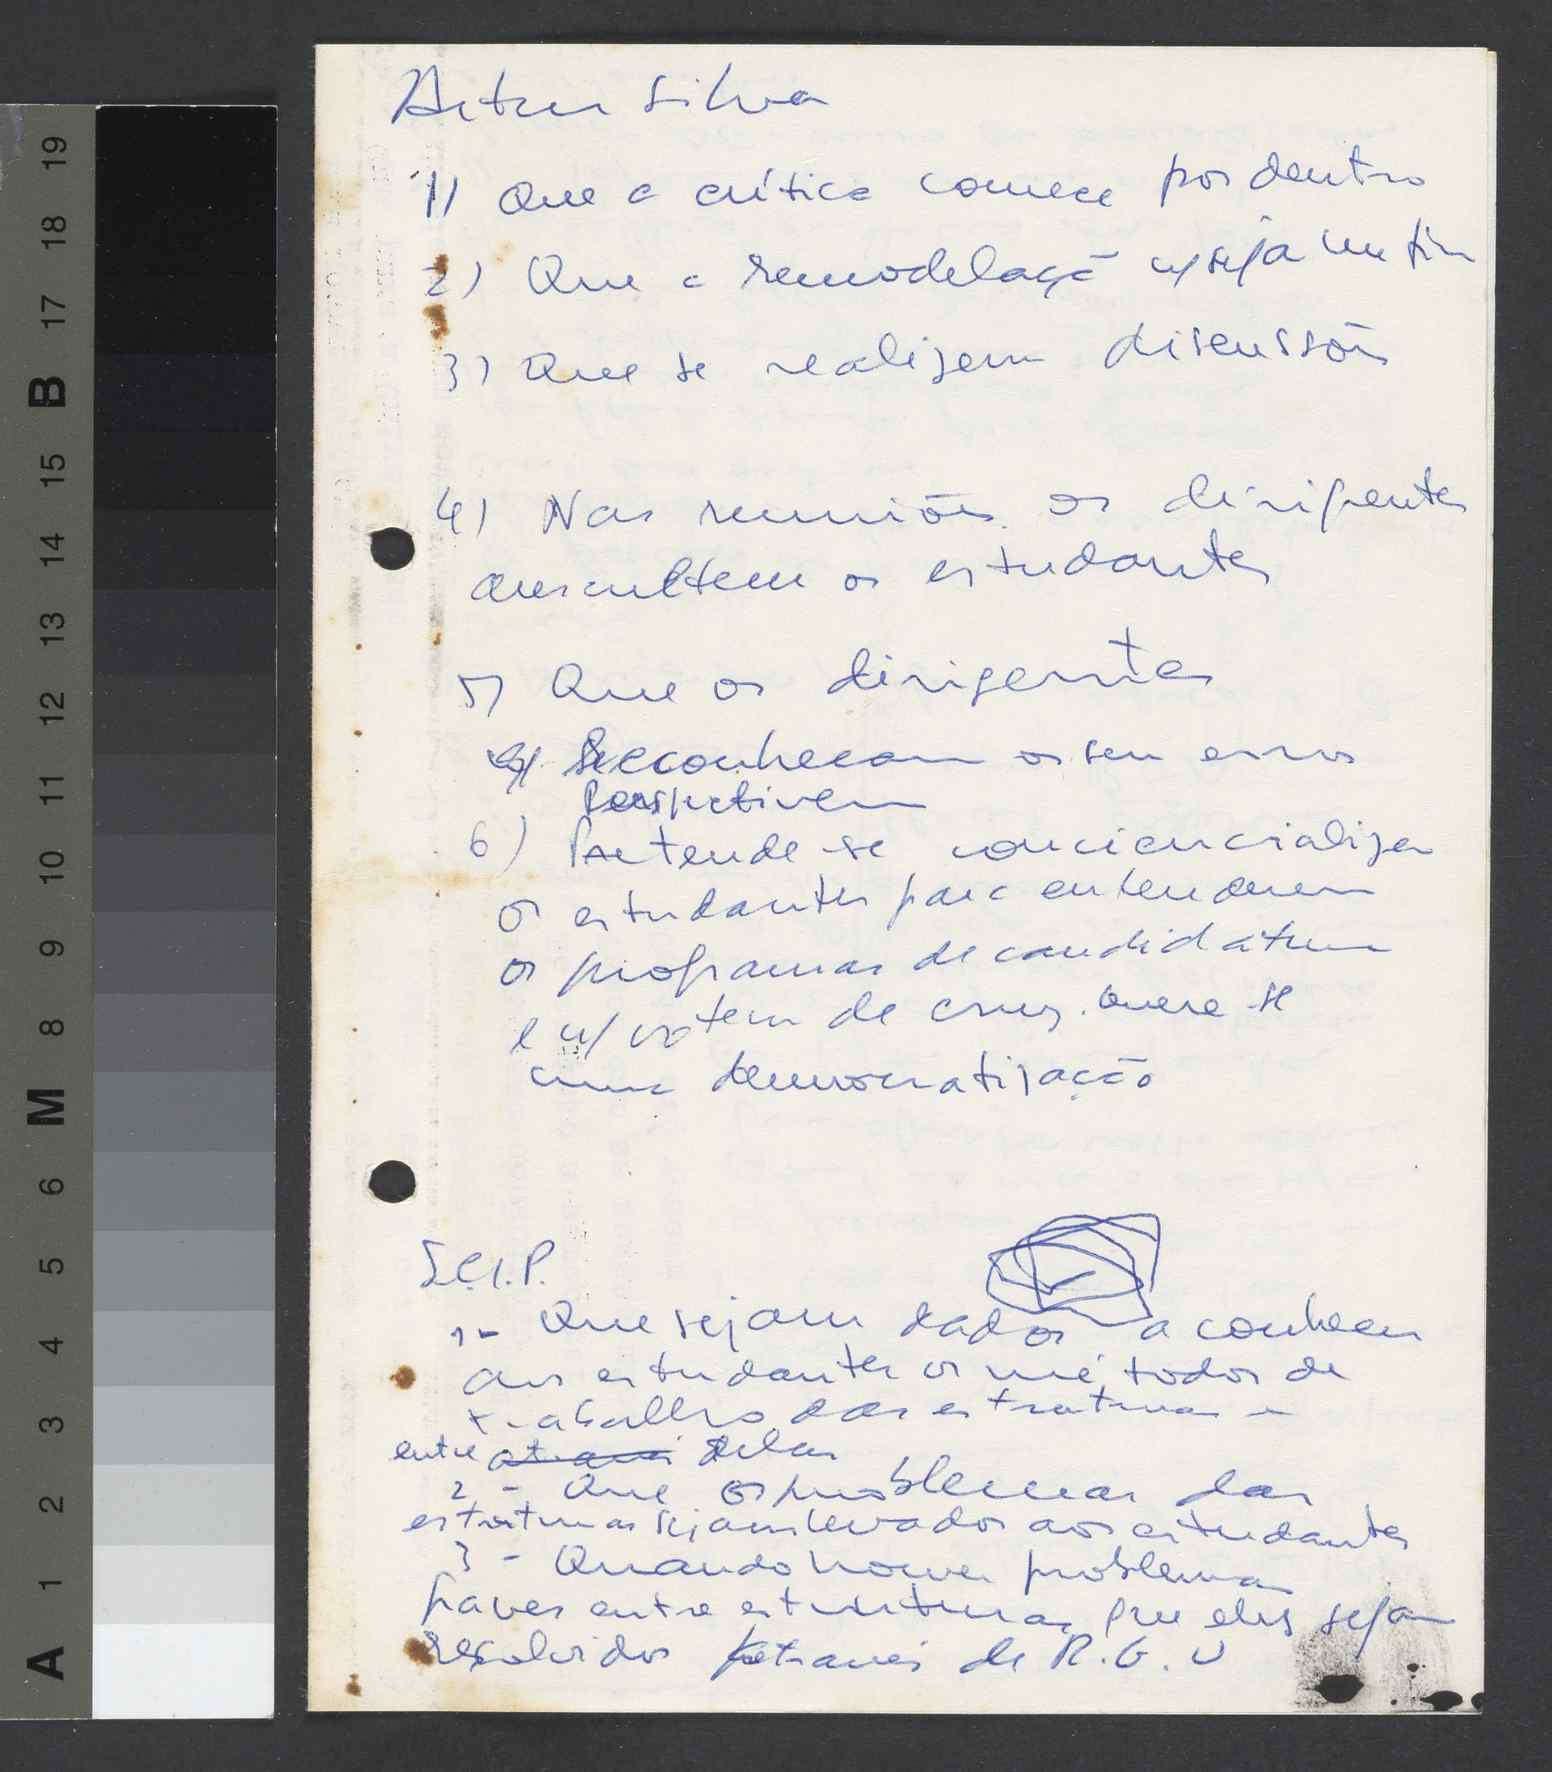 Artur Silva
1) Que a crítica comece por dentro
2) Que a remodelaçã ñ/seja um fim
3) Que se realizem discussões
4) Nas reuniões os dirigentes
auscultem os estudantes
5) Que os dirigentes
Reconheçam os seus erros
Perspetivem
6) Pretende-se consciencializar
os estudantes para entenderem
os programas de candidatura
e ñ/votem de cruz. Quere-se
uma democratização
S.C.I.P.
1- Que sejam dados a conhecer
aos estudantes os métodos de
trabalho das estruturas e
entre delas
2 - Que os problemas das
estruturas sejam levados aos estudantes
3 - Quando houver problemas
graves entre estruturas que eles sejam
resolvidos através de R.G.U
A 1 2 3 4 5 6 M 8 9 10 11 12 13 14 15 B 17 18 19